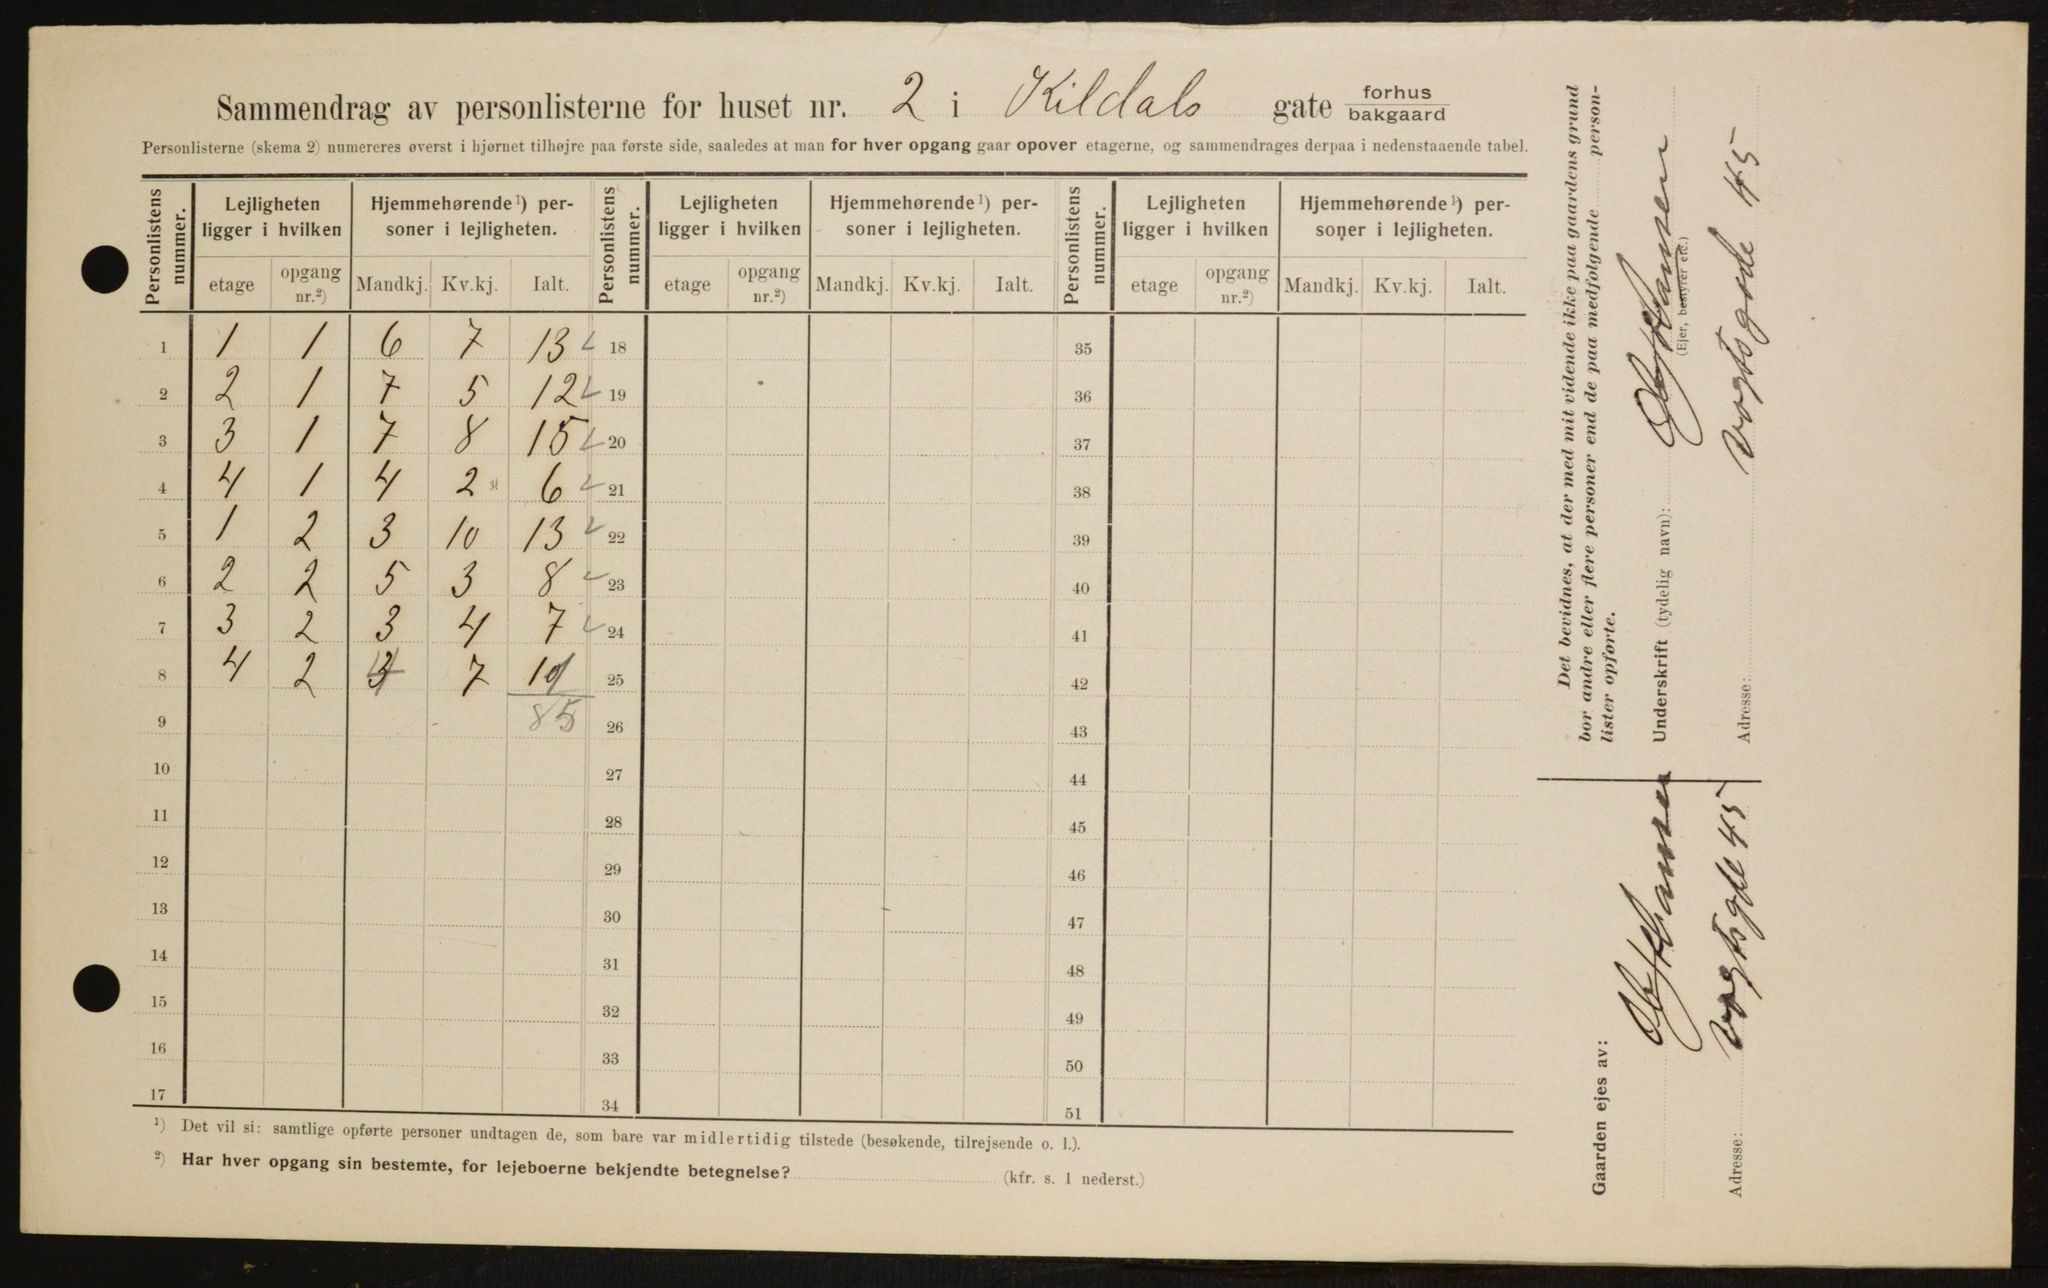 Sammendrag av personlisterne for huset nr. 2 i Kildals gate forhus bakgaard
Personlisterne (skema 2) numereres øverst i hjørnet tilhøjre paa første side, saaledes at man for hver opgang gaar opover etagerne, og sammendrages derpaa i nedenstaaende tabel.
Personlistens nummer. Lejligheten ligger i hvilken Hjemmehørende ¹) personer i lejligheten. Personlistens nummer. Lejligheten ligger i hvilken Hjemmehørende ¹) personer i lejligheten. Personlistens nummer. Lejligheten ligger i hvilken Hjemmehørende ¹) personer i lejligheten.
etage opgang nr.²) Mandkj. Kv.kj. Ialt. etage opgang nr.²) Mandkj. Kv.kj. Ialt. etage opgang nr.²) Mandkj. Kv.kj. Ialt.
1 1 1 6 7 13 18 35
2 2 1 7 5 12 19 36
3 3 1 7 8 15 20 37
4 4 1 4 2 6 21 38
5 1 2 3 10 13 22 39
6 2 2 5 3 8 23 40
7 3 2 3 4 7 24 41
8 4 2 4 7 11 25 42
9 85 26 43
10 27 44
11 28 45
12 29 46
13 30 47
14 31 48
15 32 49
16 33 50
17 34 51
¹) Det vil si: samtlige opførte personer undtagen de, som bare var midlertidig tilstede (besøkende, tilrejsende o. l.).
²) Har hver opgang sin bestemte, for lejeboerne bekjendte betegnelse? (kfr. s. 1 nederst.)
Det bevidnes, at der med mit vidende ikke paa gaardens grund
bor andre eller flere personer end de paa medfølgende person-
lister opførte.
Underskrift (tydelig navn): Hansen
(Ejer, bestyrer etc.)
Adresse: Vogtsgade 45
Gaarden ejes av: Hansen
Adresse: Vogtsgde 45